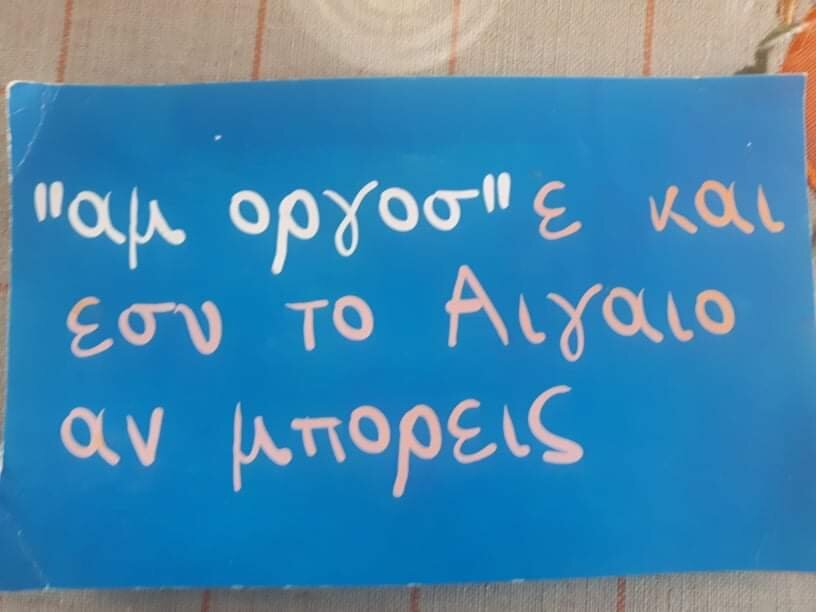 "αμ οργοσ" ε και
εσυ το Αιγαιο
αν μπορεις